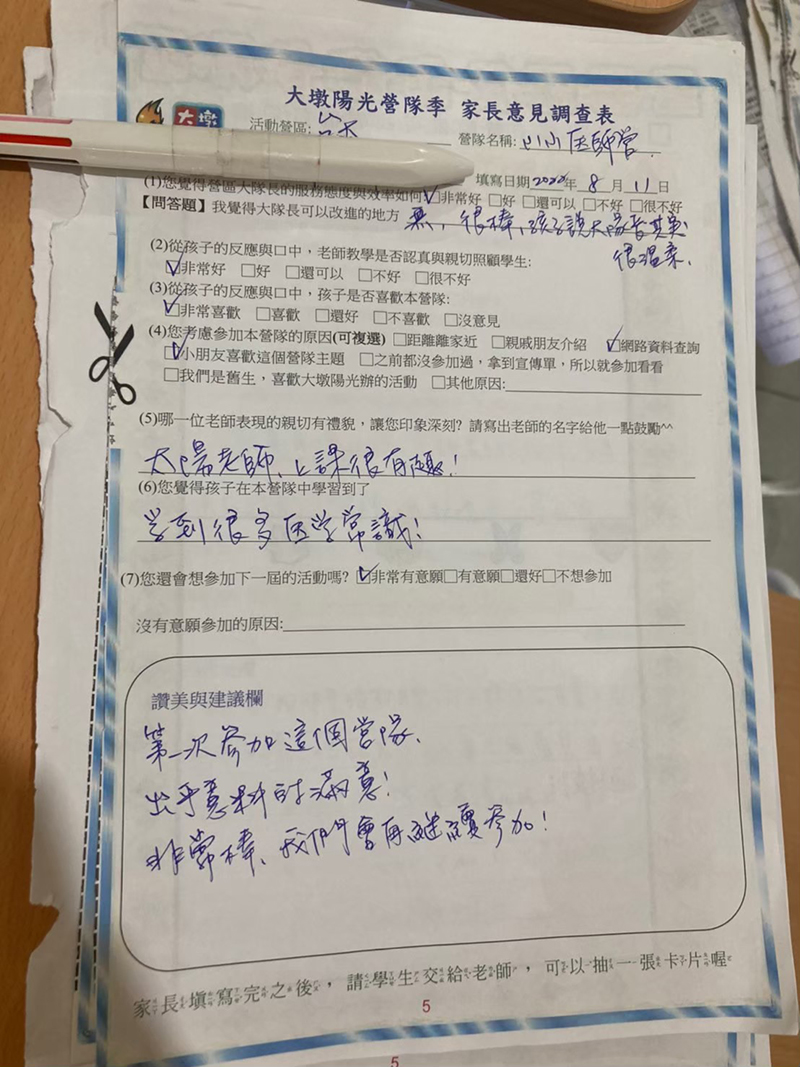 大墩陽光營隊季 家長意見調查表
大墩
活動營區:
營隊名稱: 小小医師营
填寫日期2022年 8 月 11 日
(1)您覺得營區大隊長的服務態度與效率如何☑非常好 □好 □還可以 □不好 □很不好
【問答題】我覺得大隊長可以改進的地方 無，很棒、孩子說大隊長其實
很溫柔.
(2)從孩子的反應與口中，老師教學是否認真與親切照顧學生:
☑非常好 □好 □還可以 □不好 □很不好
(3)從孩子的反應與口中，孩子是否喜歡本營隊:
☑非常喜歡 □喜歡 □還好 □不喜歡 □沒意見
(4)您考慮參加本營隊的原因(可複選) □距離離家近 □親戚朋友介紹 ☑網路資料查詢
☑小朋友喜歡這個營隊主題 □之前都沒參加過，拿到宣傳單，所以就參加看看
□我們是舊生，喜歡大墩陽光辦的活動 □其他原因:
(5)哪一位老師表現的親切有禮貌，讓您印象深刻? 請寫出老師的名字給他一點鼓勵^^
太陽老師、上課很有趣!
(6)您覺得孩子在本營隊中學習到了
学到很多医学常識!
(7)您還會想參加下一屆的活動嗎? ☑非常有意願□有意願□還好□不想參加
沒有意願參加的原因:
讚美與建議欄
第一次參加這個营隊、
出乎意料的滿意!
非常棒、我們會再繼續參加!
家長填寫完之後，請學生交給老師，可以抽一張卡片喔
5
5